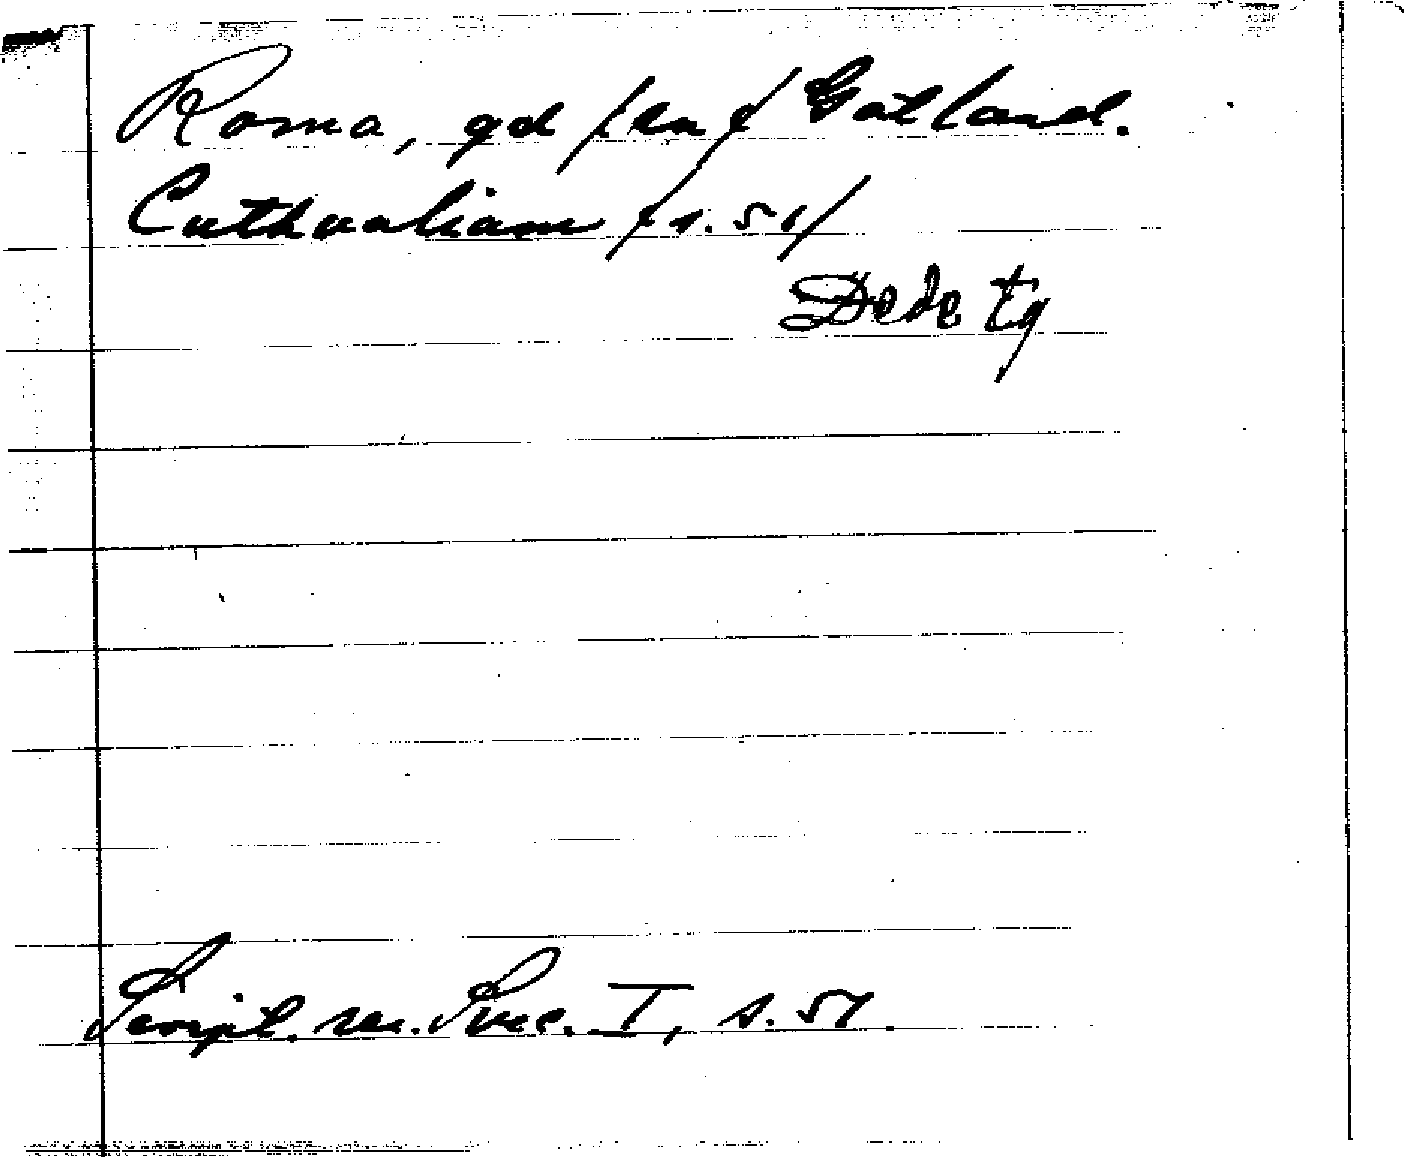 Roma, gd /en/ Gotland.
Cuthualiam /s. 51/
Dede Eg
Script. rer. Svec. I, s. 51.